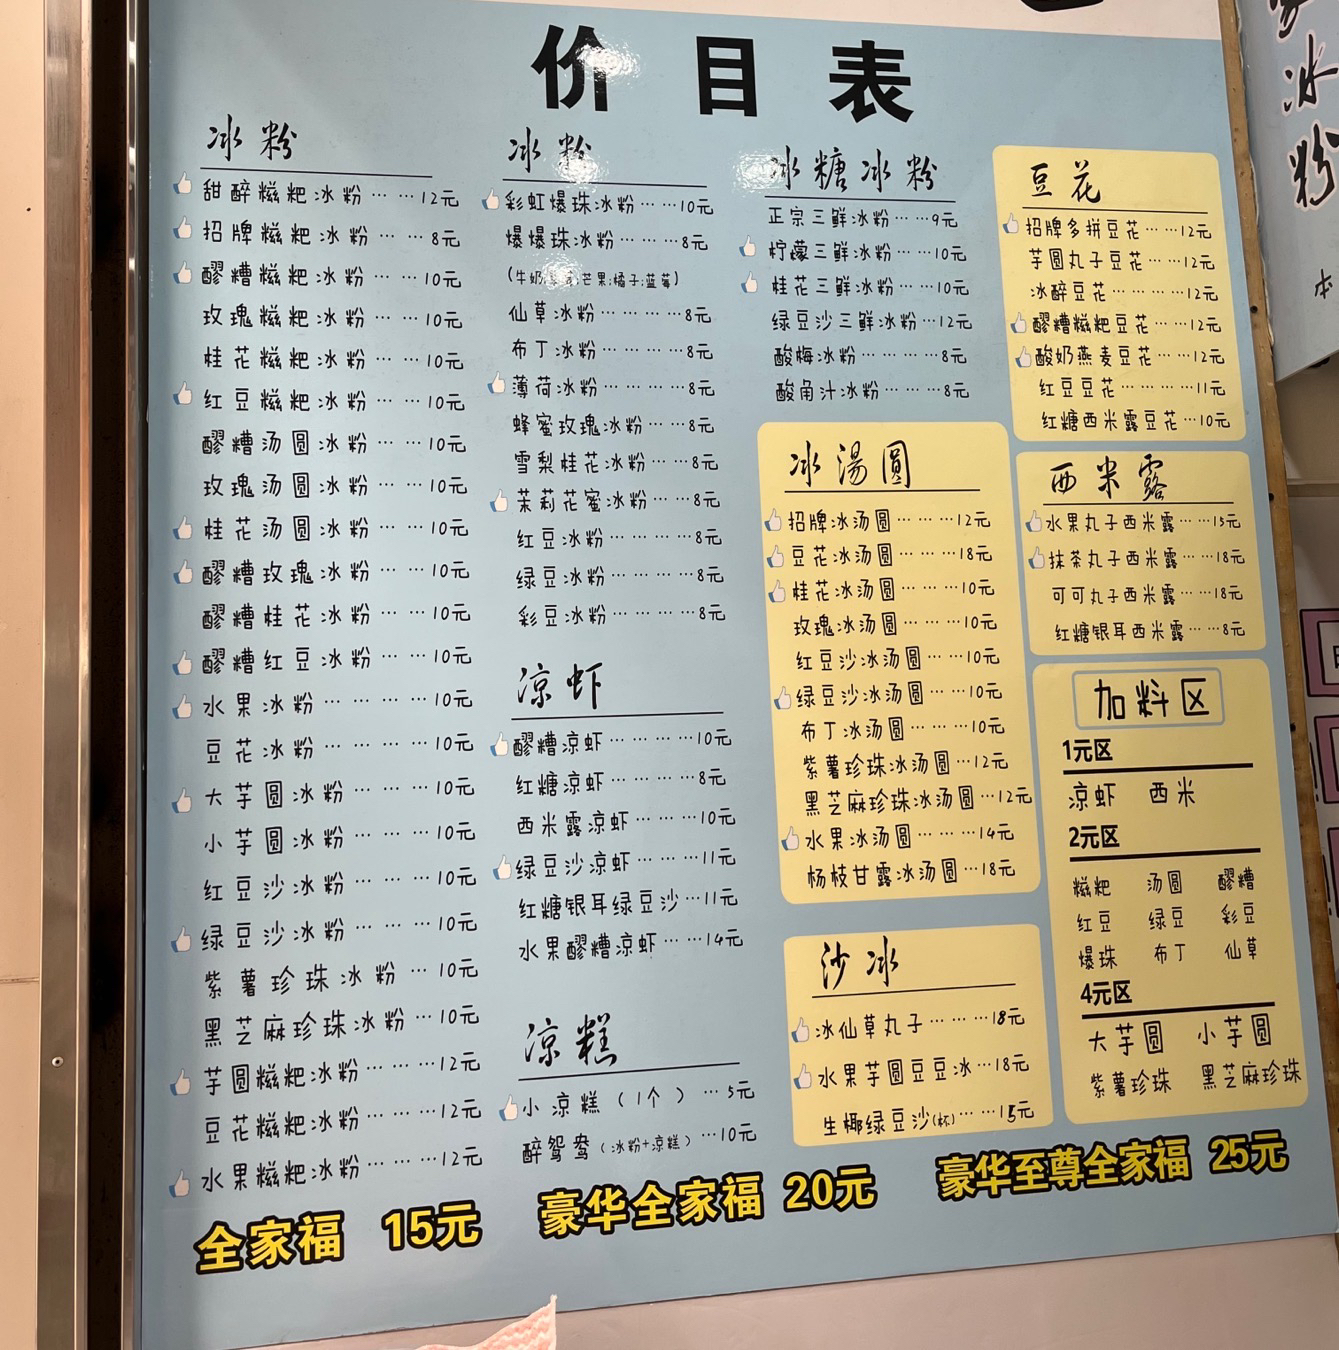 价目表
冰粉
甜醉糍粑冰粉……12元
招牌糍粑冰粉……8元
醪糟糍粑冰粉……10元
玫瑰糍粑冰粉……10元
桂花糍粑冰粉……10元
红豆糍粑冰粉……10元
醪糟汤圆冰粉……10元
玫瑰汤圆冰粉……10元
桂花汤圆冰粉……10元
醪糟玫瑰冰粉……10元
醪糟桂花冰粉……10元
醪糟红豆冰粉……10元
水果冰粉…………10元
豆花冰粉…………10元
大芋圆冰粉………10元
小芋圆冰粉………10元
红豆沙冰粉………10元
绿豆沙冰粉………10元
紫薯珍珠冰粉…10元
黑芝麻珍珠冰粉…10元
芋圆糍粑冰粉……12元
豆花糍粑冰粉………12元
水果糍粑冰粉………12元
冰粉
彩虹爆珠冰粉……10元
爆爆珠冰粉………8元
(牛奶;芒果;橘子;蓝莓)
仙草冰粉…………8元
布丁冰粉…………8元
薄荷冰粉…………8元
蜂蜜玫瑰冰粉……8元
雪梨桂花冰粉……8元
茉莉花蜜冰粉……8元
红豆冰粉…………8元
绿豆冰粉…………8元
彩豆冰粉…………8元
凉虾
醪糟凉虾…………10元
红糖凉虾…………8元
西米露凉虾………10元
绿豆沙凉虾………11元
红糖银耳绿豆沙…11元
水果醪糟凉虾……14元
凉糕
小凉糕(1个)…5元
醉鸳鸯(冰粉+凉糕)…10元
冰糖冰粉
正宗三鲜冰粉……9元
柠檬三鲜冰粉……10元
桂花三鲜冰粉……10元
绿豆沙三鲜冰粉…12元
酸梅冰粉…………8元
酸角汁冰粉………8元
冰湯圓
招牌冰汤圆………12元
豆花冰汤圆………18元
桂花冰汤圆………10元
玫瑰冰汤圆………10元
红豆沙冰汤圆……10元
绿豆沙冰汤圆……10元
布丁冰汤圆………10元
紫薯珍珠冰汤圆…12元
黑芝麻珍珠冰汤圆…12元
水果冰汤圆………14元
杨枝甘露冰汤圆…18元
沙冰
冰仙草丸子………18元
水果芋圆豆豆冰…18元
生椰绿豆沙(杯)……15元
豆花
招牌多拼豆花……12元
芋圆丸子豆花……12元
冰醉豆花…………12元
醪糟糍粑豆花……12元
酸奶燕麦豆花……12元
红豆豆花…………11元
红糖西米露豆花…10元
西米露
水果丸子西米露…15元
抹茶丸子西米露…18元
可可丸子西米露…18元
红糖银耳西米露…8元
加料区
1元区
凉虾 西米
2元区
糍粑 汤圆 醪糟
红豆 绿豆 彩豆
爆珠 布丁 仙草
4元区
大芋圆 小芋圆
紫薯珍珠 黑芝麻珍珠
全家福 15元
豪华全家福 20元
豪华至尊全家福 25元
冰粉
本